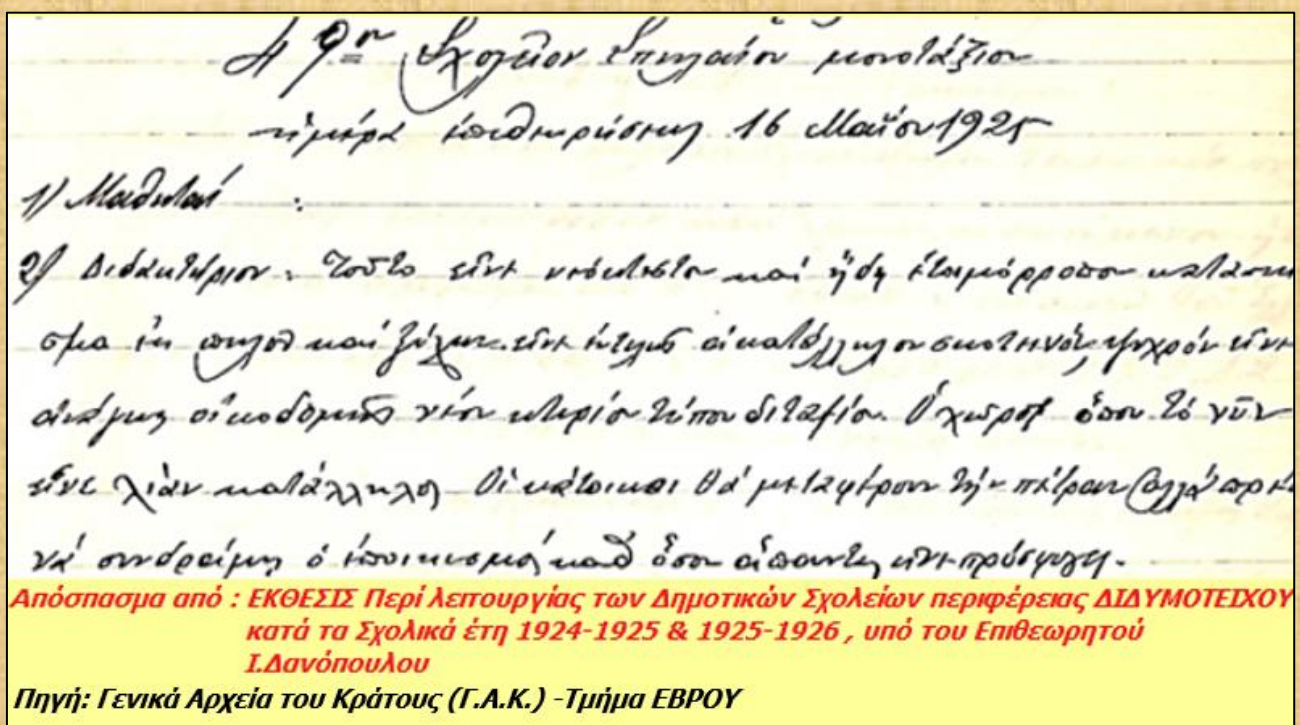 49ον Σχολεῖον Σπηλαίου μονοτάξιον
ἡμέρα ἐπιθεωρήσεως 16 Μαΐου 1925
1) Μαθηταί :
2) Διδακτήριον: Τοῦτο εἶνε νεόκτιστον καί ἤδη ἑτοιμόρροπον κατασκεύα
σμα ἐκ πηλοῦ καί ξύλων. εἶνε ἐντελῶς ἀκατάλληλον σκοτεινόν, ψυχρόν εἶνε
ἀνάγκη οἰκοδομῆς νέου κτιρίου τύπου διταξίου. Ὁ χῶρος ὅπου τό νῦν
εἶνε λίαν κατάλληλος. Οἱ κάτοικοι θά μεταφέρουν τήν πέτραν ἀλλά πρέπει
νά συνδράμῃ ὁ ἐποικισμός καθ' ὅσον ἅπαντες εἶνε πρόσφυγες.
Απόσπασμα από : ΕΚΘΕΣΙΣ Περί λειτουργίας των Δημοτικών Σχολείων περιφέρειας ΔΙΔΥΜΟΤΕΙΧΟΥ
κατά τα Σχολικά έτη 1924-1925 & 1925-1926 , υπό του Επιθεωρητού
Ι.Δανόπουλου
Πηγή: Γενικά Αρχεία του Κράτους (Γ.Α.Κ.) -Τμήμα ΕΒΡΟΥ